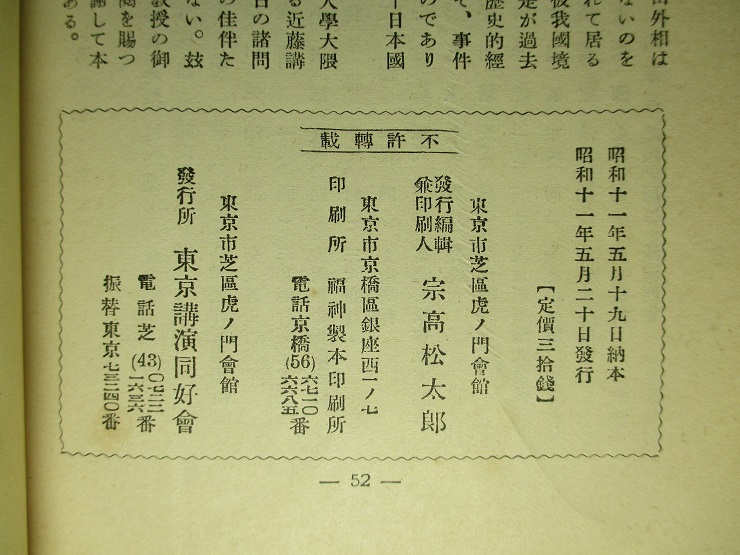 由外相は
ないのを
れて居る
彼我國境
走が過去
歷史的經
て、事件
のであり
―日本國
大學大隈
る近藤講
日の諸問
の佳伴た
ない。玆
敎授の御
閲を賜つ
謝して本
ある。
不許轉載
昭和十一年五月十九日納本
昭和十一年五月二十日發行
【定價三拾錢】
東京市芝區虎ノ門會館
發行編輯
兼印刷人 宗高松太郎
東京市京橋區銀座西一ノ七
印刷所 福神製本印刷所
電話京橋(56)六七一〇 六六八五番
東京市芝區虎ノ門會館
發行所 東京講演同好會
電話芝(43)〇七二二 一六三六番
振替東京七三二四〇番
— 52 —